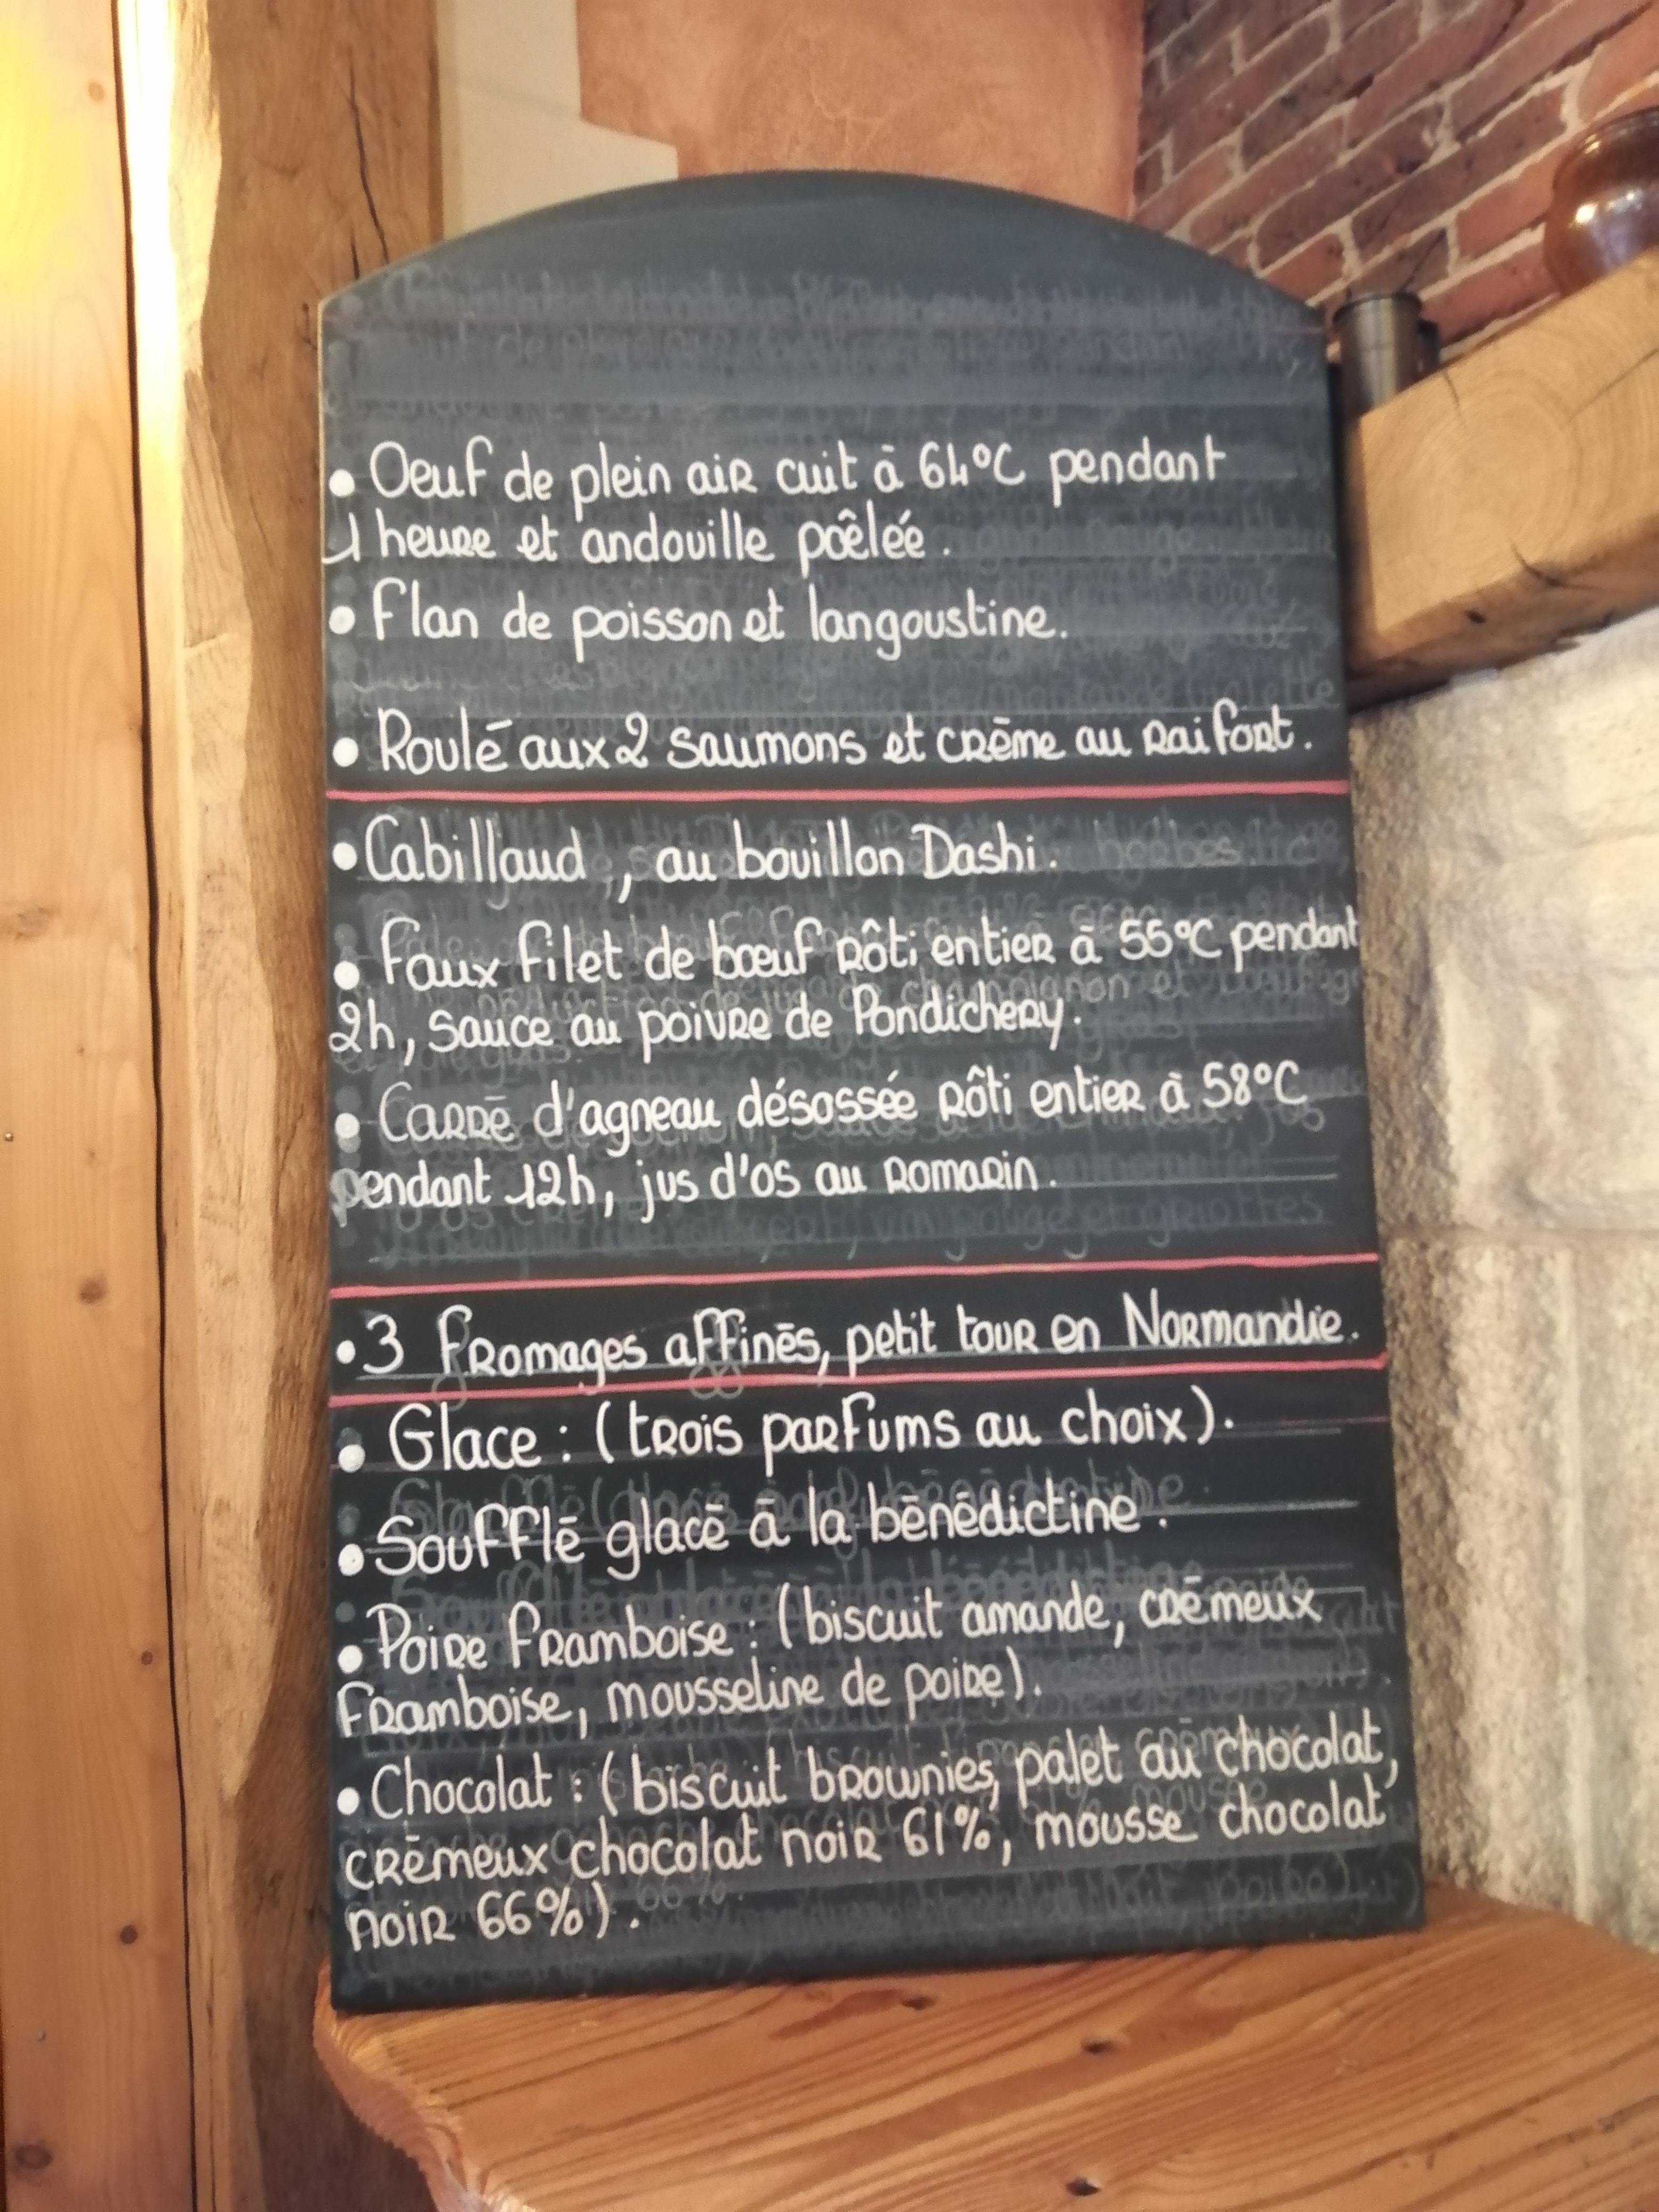 • Oeuf de plein air cuit à 64°C pendant
1 heure et andouille poêlée.
• Flan de poisson et langoustine.
• Roulé aux 2 saumons et crème au raifort.
• Cabillaud, au bouillon Dashi.
• Faux filet de bœuf rôti entier à 55°C pendant
2h, sauce au poivre de Pondichery.
• Carré d'agneau désossée rôti entier à 58°C
pendant 12h, jus d'os au romarin.
• 3 fromages affinés, petit tour en Normandie.
• Glace : (trois parfums au choix).
• Soufflé glacé à la bénédictine.
• Poire framboise : (biscuit amande, crémeux
framboise, mousseline de poire).
• Chocolat : (biscuit brownies, palet au chocolat,
crémeux chocolat noir 61%, mousse chocolat
noir 66%).